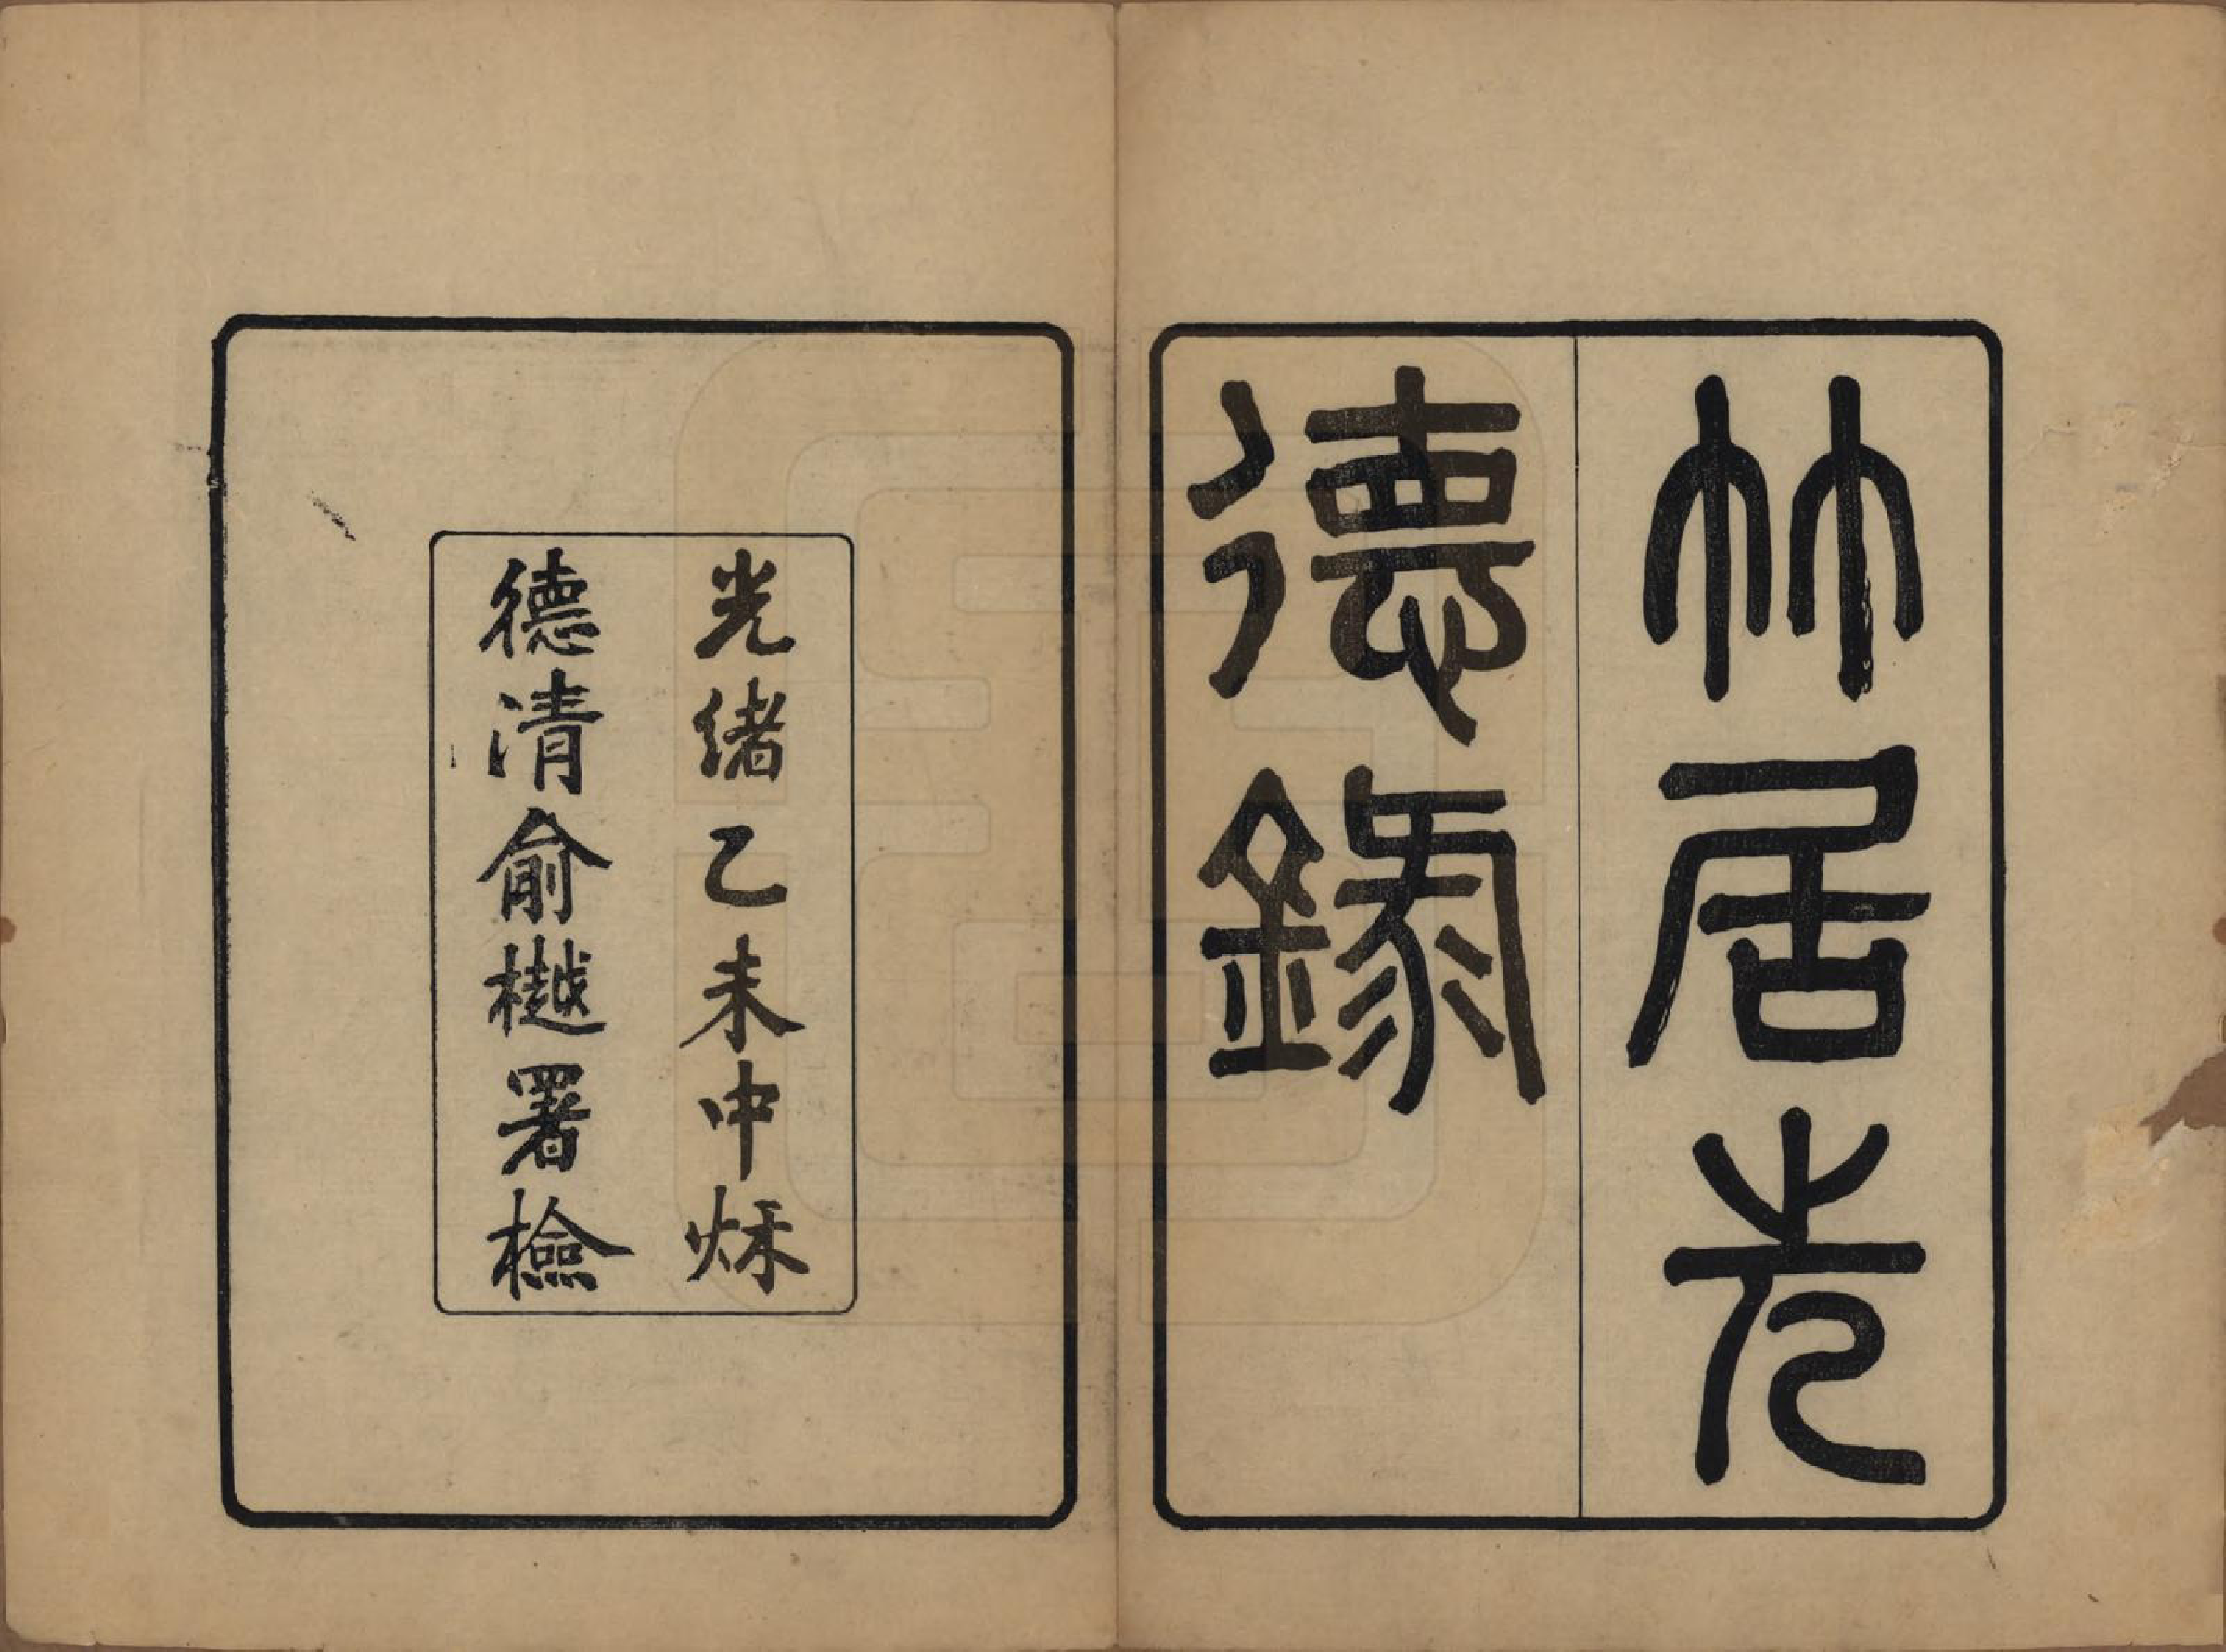 竹居先
德錄
光緒乙未中秌
德清俞樾署檢